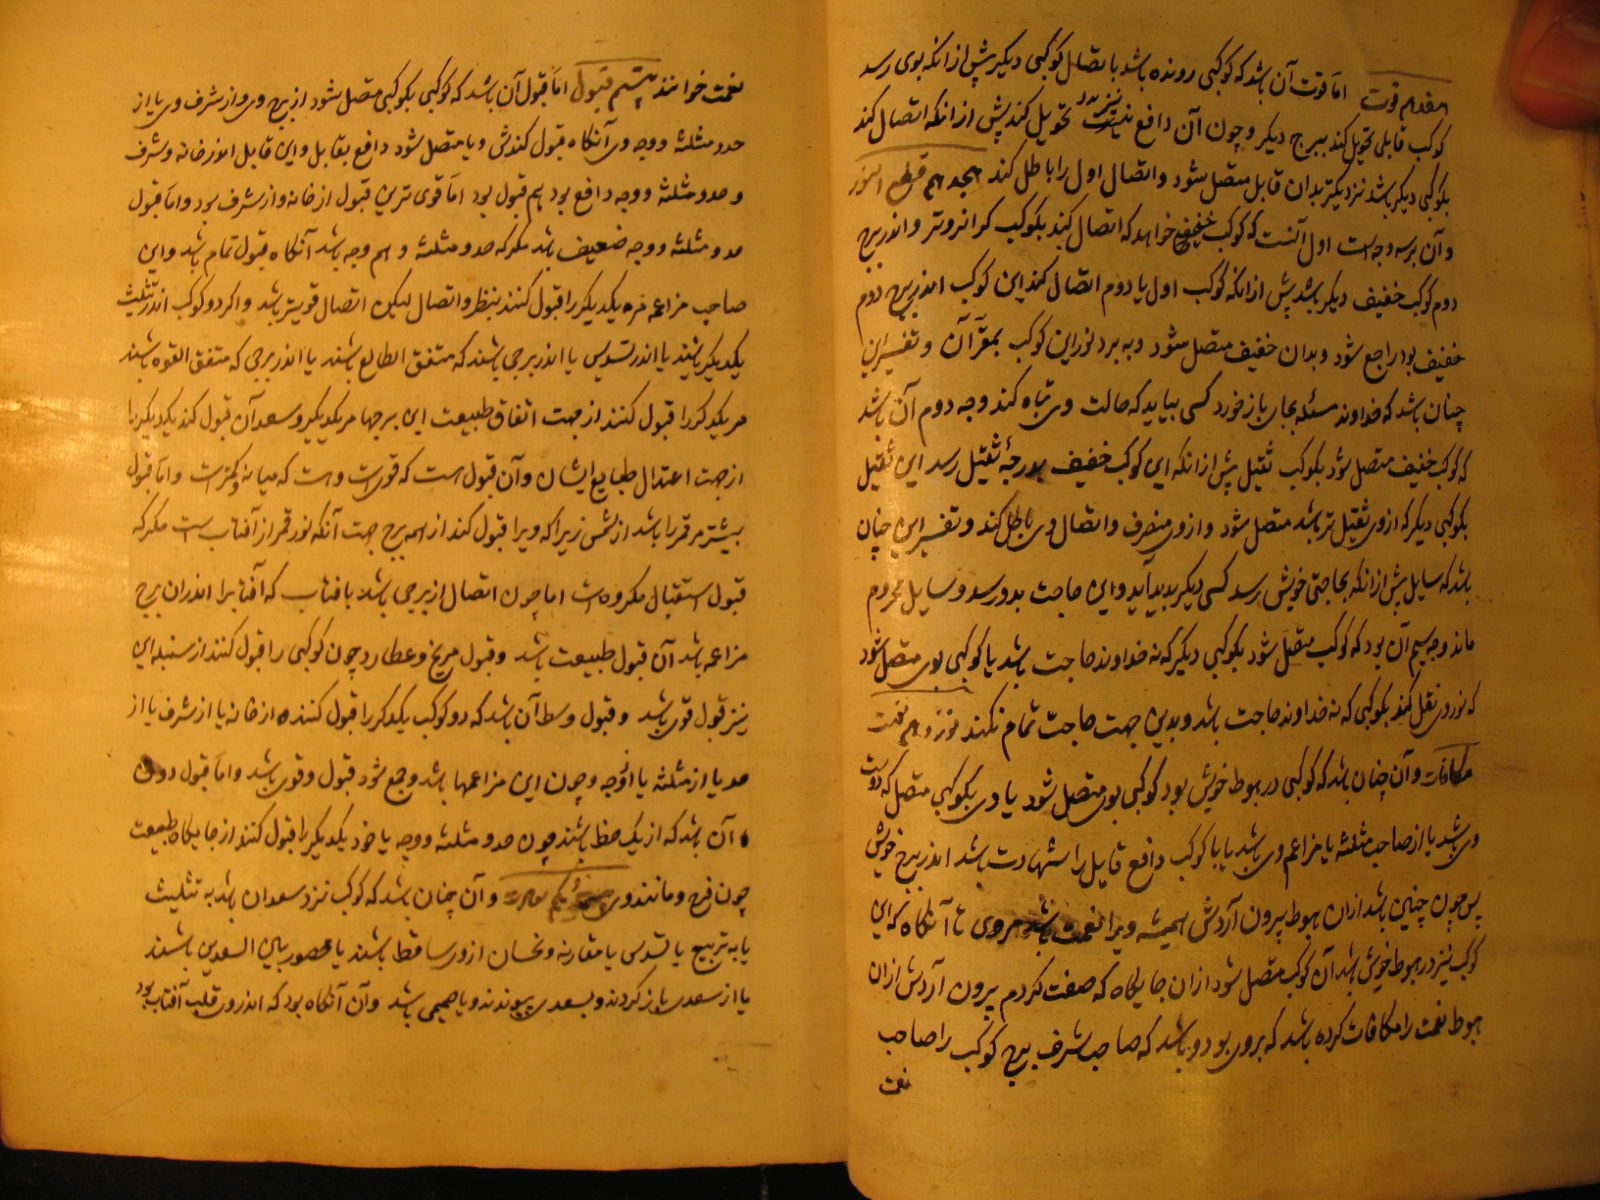 هفدهم فوت اما فوت آن باشد که کوکبی رونده باشد باتصال کوکبی دیکر پیش از انکه بوی رسد
کوکب قابلی تحویل کند ببرج دیکر و چون آن دافع تحویل کند پیش از انکه اتصال کند
بکوکبی دیکر باشد نزدیکتر بدان قابل متصل شود و اتصال اول را باطل کند هجدهم قطع النور
و آن بر سه وجه است اول آنست که کوکب خفیف خواهد که اتصال کند بکوکب کرانروتر و اندر برج
دوم کوکب خفیف دیکر باشد پیش از انکه کوکب اول یا دوم اتصال کند این کوکب اندر برج دوم
خفیف بود راجع شود و بدان خفیف متصل شود و به برد نور این کوکب بمقر آن و تفسیر این
چنان باشد که خداوند مسئله بجای باز خورد کسی بیاید که حالت وی تباه کند وجه دوم آن باشد
که کوکب خفیف متصل شود بکوکب ثقیل پیش از انکه این کوکب خفیف بدرجۀ ثقیل رسد این ثقیل
بکوکبی دیکر که از وی ثقیل تر باشد متصل شود و از وی منصرف و اتصال وی باطل کند و تفسیر این چنان
باشد که سایل پیش از انکه بحاجتی خویش رسد کسی دیکر بدید آید و این حاجت بدو رسد و سایل محروم
ماند وجه سیم آن بود که کوکب متصل شود بکوکبی دیکر که نه خداوند حاجت باشد یا کوکبی بوی متصل شود
که نور وی نقل کند بکوکبی که نه خداوند حاجت باشد و بدین جهت حاجت تمام نکند نوزدهم نعمت
مکافات و آن چنان باشد که کوکبی در هبوط خویش بود کوکبی بوی متصل شود یا وی بکوکبی متصل که دوست
وی باشد یا از صاحب مثلثه یا مزاعم وی باشد یا با کوکب دافع قابل را شهادت باشد اندر برج خویش
پس چون چنین باشد از ان هبوط بیرون آردش همیشه ویرا نعمت باشد بروی تا آنکاه که این
کوکب نیز در هبوط خویش باشد آن کوکب متصل شود از ان جایکاه که صفت کردم بیرون آردش از ان
هبوط نعمت را مکافات کرده باشد که بروی بود و باشد که صاحب شرف برج کوکب را صاحب
نعمت
نعمت خوانند بیستم قبول اما قبول آن باشد که کوکبی بکوکبی متصل شود از برج وی و از شرف وی یا از
حد و مثلثه و وجه وی آنکاه قبول کندش و یا متصل شود دافع بقابل و این قابل اندر خانه و شرف
و حد و مثلثه و وجه دافع بود هم قبول بود اما قوی ترین قبول از خانه و از شرف بود و اما قبول
حد و مثلثه و وجه ضعیف باشد مکر که حد و مثلثه و هم وجه باشد آنکاه قبول تمام باشد و این
صاحب مزاعمه مر یکدیکر را قبول کنند بنظر و اتصال لیکن اتصال قویتر باشد و اکر دو کوکب اندر تثلیث
یکدیکر باشند یا اندر تسدیس یا اندر برجی باشند که متفق المطالع باشند یا اندر برجی که متفق القوه باشند
مر یکدکر را قبول کنند از جهت اتفاق طبیعت این برجها مر یکدیکر و سعدان قبول کند یکدیکر را
از جهت اعتدال طبایع ایشان و آن قبول است که قوی است و هست که میانه و کمتر است و اما قبول
بیشتر مر قمر را باشد از شمس زیراکه ویرا قبول کند از همه برج جهت آنکه نور قمر از آفتاب است مکر که
قبول استقبال مکروه است اما چون اتصال از برجی باشد بافتاب که آفتابرا اندران برج
مزاعمه باشد آن قبول طبیعت باشد و قبول مریخ و عطارد چون کوکبی را قبول کنند از سنبله این
نیز قبول قوی باشد و قبول وسط آن باشد که دو کوکب یکدکر را قبول کننده از خانه یا از شرف یا از
حد یا از مثلثه یا از وجه و چون این مزاعمها باشد و جمع شود قبول وقوی باشد و اما قبول دون
آن باشد که از یک حظ باشند چون حد و مثلثه و وجه یا خود یکدیکر را قبول کنند از جایکاه طبیعت
چون فرح و مانند وی بیست و یکم و آن چنان باشد که کوکب نزد سعدان باشد به تثلیث
یا به تربیع یا تسدس یا مقارنه و نحسان از وی ساقط باشند یا محصور بین السعدین باشند
یا از سعدی باز کردند و بسعدی پیوندند و یا صمیمی باشد و آن آنکاه بود که اندر وی قلب آفتاب بود